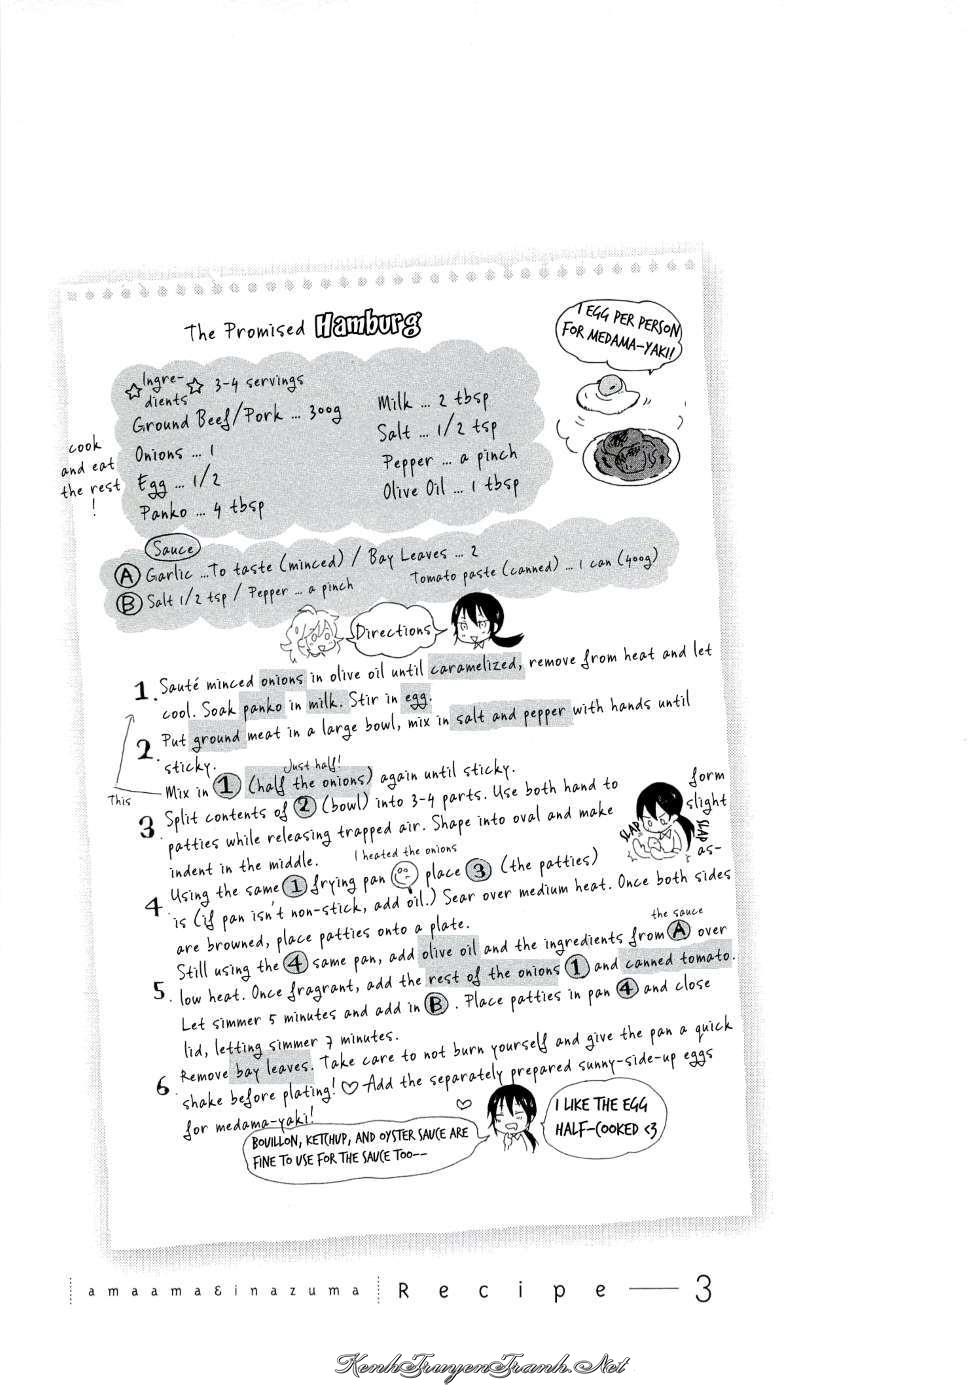 The Promised Hamburg
I EGG PER PERSON
FOR MEDAMA-YAKI!
Ingre-
dients
3-4 servings
Ground Beef/Pork ... 300g
Onions ... 1
Egg ... 1/2
Panko ... 4 tbsp
Milk ... 2 tbsp
Salt ... 1/2 tsp
Pepper ... a pinch
Olive Oil ... 1 tbsp
cook
and eat
the rest
!
Sauce
A Garlic ...To taste (minced) / Bay Leaves ... 2
Tomato paste (canned) ... 1 can (400g)
B Salt 1/2 tsp / Pepper ... a pinch
Directions
1. Sauté minced onions in olive oil until caramelized, remove from heat and let
cool. Soak panko in milk. Stir in egg.
2. Put ground meat in a large bowl, mix in salt and pepper with hands until
sticky.
Just half!
Mix in 1 (half the onions) again until sticky.
This
3 Split contents of 2 (bowl) into 3-4 parts. Use both hand to form
patties while releasing trapped air. Shape into oval and make slight
indent in the middle.
SLAP
SLAP
as-
I heated the onions
4 Using the same 1 frying pan place 3 (the patties)
is (if pan isn't non-stick, add oil.) Sear over medium heat. Once both sides
are browned, place patties onto a plate.
the sauce
Still using the 4 same pan, add olive oil and the ingredients from A over
5. low heat. Once fragrant, add the rest of the onions 1 and canned tomato.
Let simmer 5 minutes and add in B. Place patties in pan 4 and close
lid, letting simmer 7 minutes.
6. Remove bay leaves. Take care to not burn yourself and give the pan a quick
shake before plating! ♡ Add the separately prepared sunny-side-up eggs
for medama-yaki!
BOUILLON, KETCHUP, AND OYSTER SAUCE ARE
FINE TO USE FOR THE SAUCE TOO--
I LIKE THE EGG
HALF-COOKED <3
amaama&inazuma Recipe — 3
KenhTruyenTranh.Net